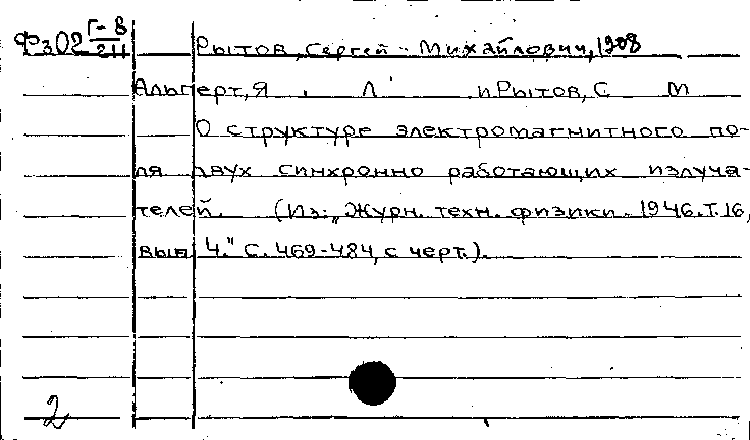 Фз02 Г-8/211 Рытов, Сергей Михайлович, 1908
Альперт, Я. Л. и Рытов, С. М
О структуре электромагнитного по-
ля двух синхронно работающих излуча-
телей. (Из: „Журн. техн. физики. 1946. Т. 16,
вып 4." С. 469-484, с черт.).
2